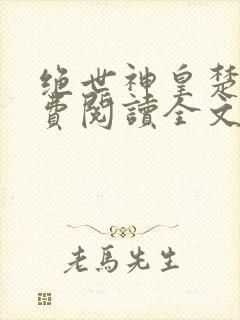 绝世神皇楚
費閱讀全文
老馬先生